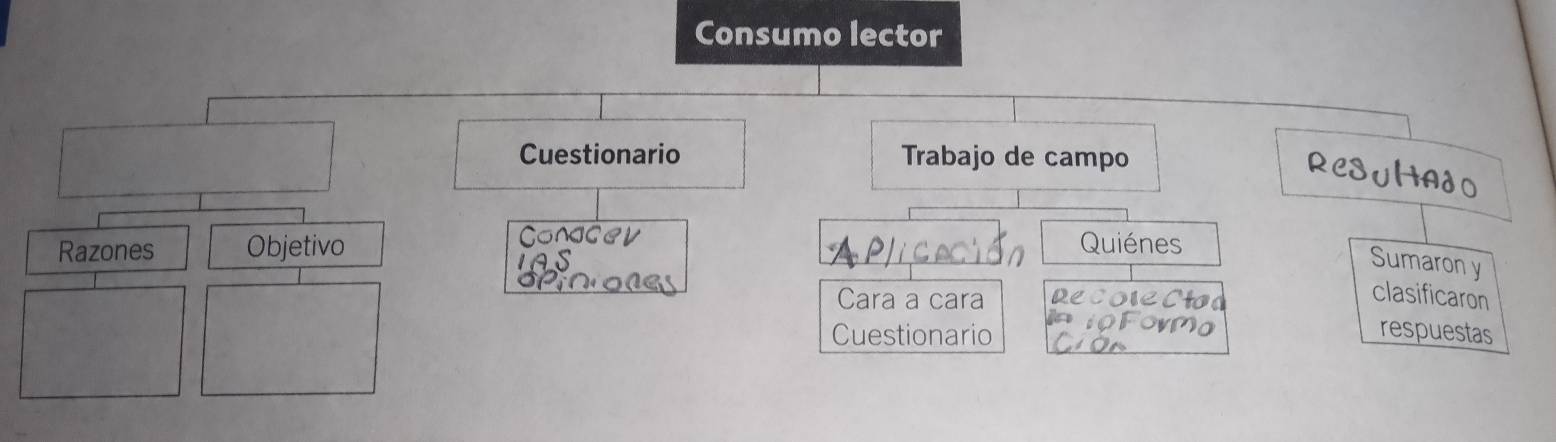 Consumo lector
Cuestionario
Trabajo de campo
Resultado
Razones
Objetivo
Conocer
las
opiniones
Aplicación
Quiénes
Cara a cara
Cuestionario
Recolectan
la informa
ción
Sumaron y
clasificaron
respuestas